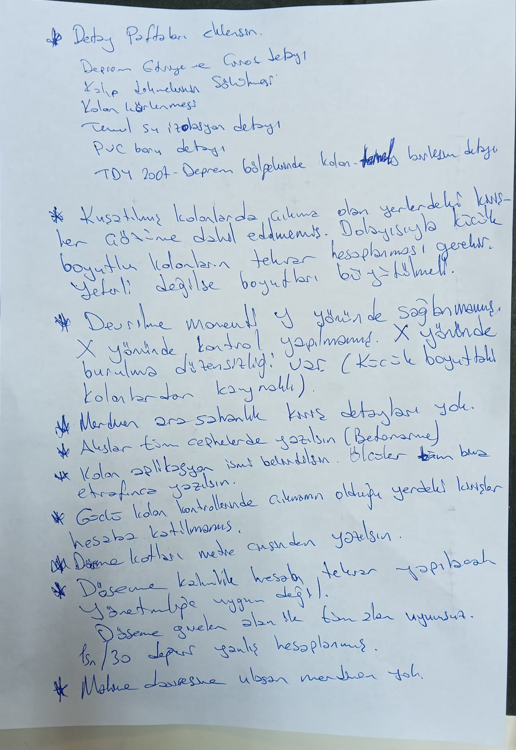 * Detay Paftaları eklensin.
Deprem Etriye ve Çiroz detayı
Kalıp Sökülmesi
Kolon
Temel su izolasyon detayı
PVC boru detayı
TDY 2007 - Deprem bölgelerinde kolon - birleşim detayı
* Kuşatılmış kolonlarda, çıkma olan yerlerdeki kiriş-
ler çözüme dahil edilmemiş. Dolayısıyla küçük
boyutlu kolonların tekrar hesaplanması gerekir.
Yeterli değilse boyutları büyütülmeli.
* Devrilme momenti y yönünde sağlanmamış.
X yönünde kontrol yapılmamış. X yönünde
burulma düzensizliği var (Küçük boyuttaki
kolonlardan kaynaklı).
* Merdiven ara sahanlık kiriş detayları yok.
* Akslar tüm cephelerde yazılsın (Betonarme)
* Kolon aplikasyon ismi belirtilsin. Ölçüler bina
etrafınca yazılsın.
* Güçlü kolon kontrollerinde çıkmanın olduğu yerdeki kirişler
hesaba katılmamış.
* Döşeme kotları metre cinsinden yazılsın.
* Döşeme kalınlık hesabı tekrar yapılacak
Yönetmeliğe uygun değil.
Döşeme alan ile tüm alan uyumsuz.
/30 değeri yanlış hesaplanmış.
* Makine dairesine ulaşan merdiven yok.